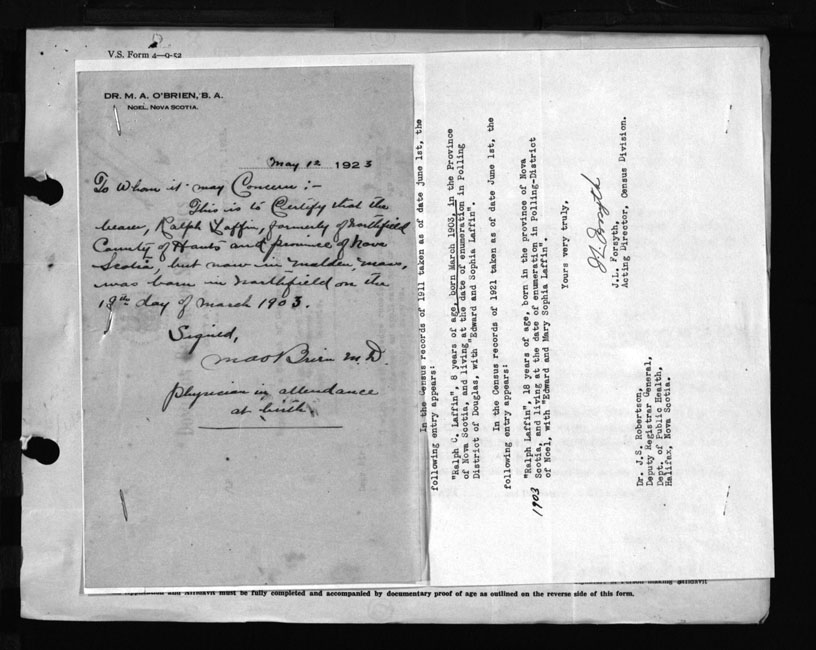 V.S. Form 4—9-52
DR. M. A. O'BRIEN, B. A.
NOEL, NOVA SCOTIA.
May 12 1923
To Whom it may Concern :-
This is to Certify that the
bearer, Ralph Laffin, formerly of Northfield
County of Hants and province of Nova
Scotia, but now in Malden, Mass,
was born in Northfield on the
18th day of March 1903.
Signed,
M A O'Brien M.D.
Physician in attendance
at birth
In the Census records of 1911 taken as of date june 1st, the
following entry appears:
"Ralph C. Laffin", 8 years of age, born March 1903, in the Province
of Nova Scotia, and living at the date of enumeration in Polling
District of Douglas, with "Edward and Sophia Laffin".
In the Census records of 1921 taken as of date June 1st, the
following entry appears:
"Ralph Laffin", 18 years of age, born in the province of Nova
Scotia, and living at the date of enumeration in Polling-District
of Noel, with "Edward and Mary Sophia Laffin".
1903
Yours very truly,
J.L. Forsyth
J.L. Forsyth,
Acting Director, Census Division.
Dr. J.S. Robertson,
Deputy Registrar General,
Dept. of Public Health,
Halifax, Nova Scotia.
Person making affidavit
Application and Affidavit must be fully completed and accompanied by documentary proof of age as outlined on the reverse side of this form.